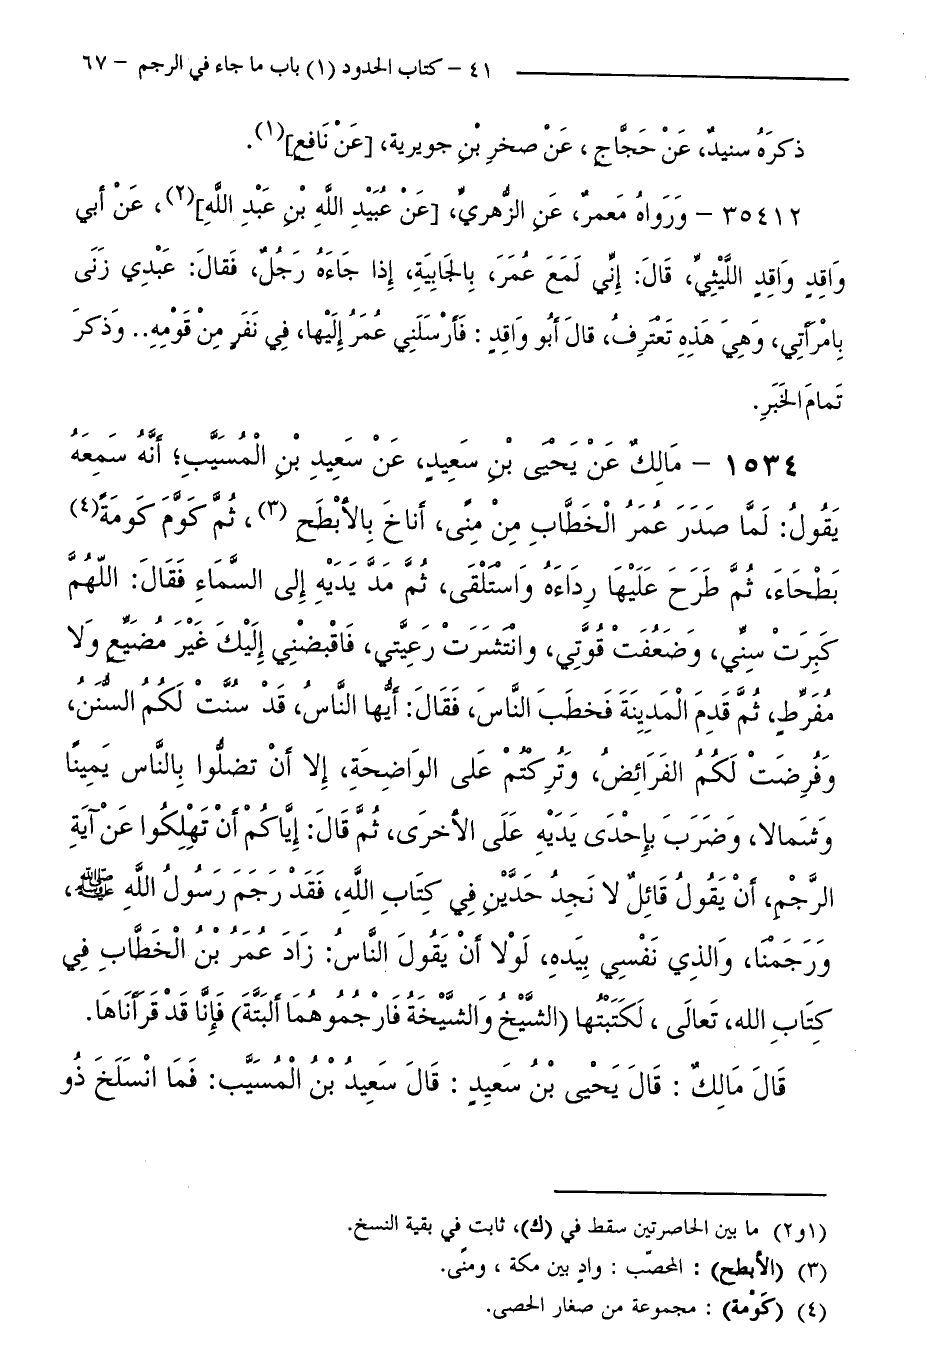 ٤١ - كتاب الحدود (١) باب ما جاء في الرجم - ٦٧
ذكرَهُ سنيدٌ، عَنْ حَجَّاجٍ، عَنْ صخرِ بْنِ جويرية، [عَنْ نَافعٍ](١).
٣٥٤١٢ - وَرَواهُ مَعمرٌ، عَنِ الزُّهريِّ، [عَنْ عُبَيْدِ اللَّهِ بْنِ عَبْدِ اللَّهِ](٢)، عَنْ أبي
وَاقِدٍ وَاقِدٍ اللَّيْثِيِّ، قَالَ: إنِّي لَمَعَ عُمَرَ، بِالجَابِيَةِ، إذا جَاءَهُ رَجُلٌ، فَقالَ: عَبْدِي زَنَى
بِامْرَأتِي، وَهِيَ هَذِهِ تَعْتَرِفُ، قالَ أبُو وَاقِدٍ : فَأرْسَلَنِي عُمَرُ إلَيْها، فِي نَفَرٍ مِنْ قَوْمِهِ.. وَذكرَ
تَمامَ الخَبَرِ.
١٥٣٤ - مَالِكٌ عَنْ يَحْيَى بْنِ سَعِيدٍ، عَنْ سَعِيدِ بْنِ الْمُسَيَّبِ؛ أنَّهُ سَمِعَهُ
يَقُولُ: لَمَّا صَدَرَ عُمَرُ الْخَطَّابِ مِنْ مِنًى، أناخَ بِالأبْطَحِ (٣)، ثُمَّ كَوَّمَ كَومَةً(٤)
بَطْحَاءَ، ثُمَّ طَرَحَ عَلَيْهَا رِدَاءَهُ وَاسْتَلْقَى، ثُمَّ مَدَّ يَدَيْهِ إلى السَّمَاءِ فَقَالَ: اللَّهُمَّ
كَبِرَتْ سِنِّي، وَضَعُفَتْ قُوَّتِي، وانْتَشَرَتْ رَعِيَّتِي، فَاقْبِضْنِي إلَيْكَ غَيْرَ مُضَيِّعٍ وَلَا
مُفَرِّطٍ، ثُمَّ قَدِمَ الْمَدِينَةَ فَخطَبَ النَّاسَ، فَقَالَ: أيُّها النَّاسُ، قَدْ سُنَّتْ لَكُمُ السُّنَنُ،
وَفُرِضَتْ لَكُمُ الفَرَائِضُ، وَتُرِكْتُمْ عَلى الوَاضِحَةِ، إلا أنْ تضلُّوا بِالنَّاسِ يَمِينًا
وَشمالا، وَضَرَبَ بِإحْدَى يَدَيْهِ عَلَى الأخرَى، ثُمَّ قَالَ: إيَّاكمْ أنْ تَهْلِكُوا عَنْ آيَةِ
الرَّجْمِ، أنْ يَقُولُ قَائِلٌ لا نَجِدُ حَدَّيْنِ فِي كِتَابِ اللَّهِ، فَقَدْ رَجَمَ رَسُولُ اللَّهِ ﷺ،
وَرَجَمْنَا، وَالذي نَفْسِي بِيَدهِ، لَوْلا أنْ يَقُولَ النَّاسُ: زَادَ عُمَرُ بْنُ الْخَطَّابِ فِي
كِتَابِ الله، تَعَالَى ، لَكَتَبْتُها (الشَّيْخُ وَالشَّيْخَةُ فَارْجمُوهُمَا ألبَتَّةَ) فَإنَّا قَدْ قَرَأنَاهَا.
قَالَ مَالِكٌ : قَالَ يَحْيى بْنُ سَعِيدٍ : قَالَ سَعِيدُ بْنُ الْمُسَيَّبِ: فَمَا انْسَلَخَ ذُو
(١و٢) ما بين الحاصرتين سقط في (ك)، ثابت في بقية النسخ.
(٣) (الأبطح) : المحصّب : وادٍ بين مكة ، ومنًى.
(٤) (كَوْمة) : مجموعة من صغار الحصى.